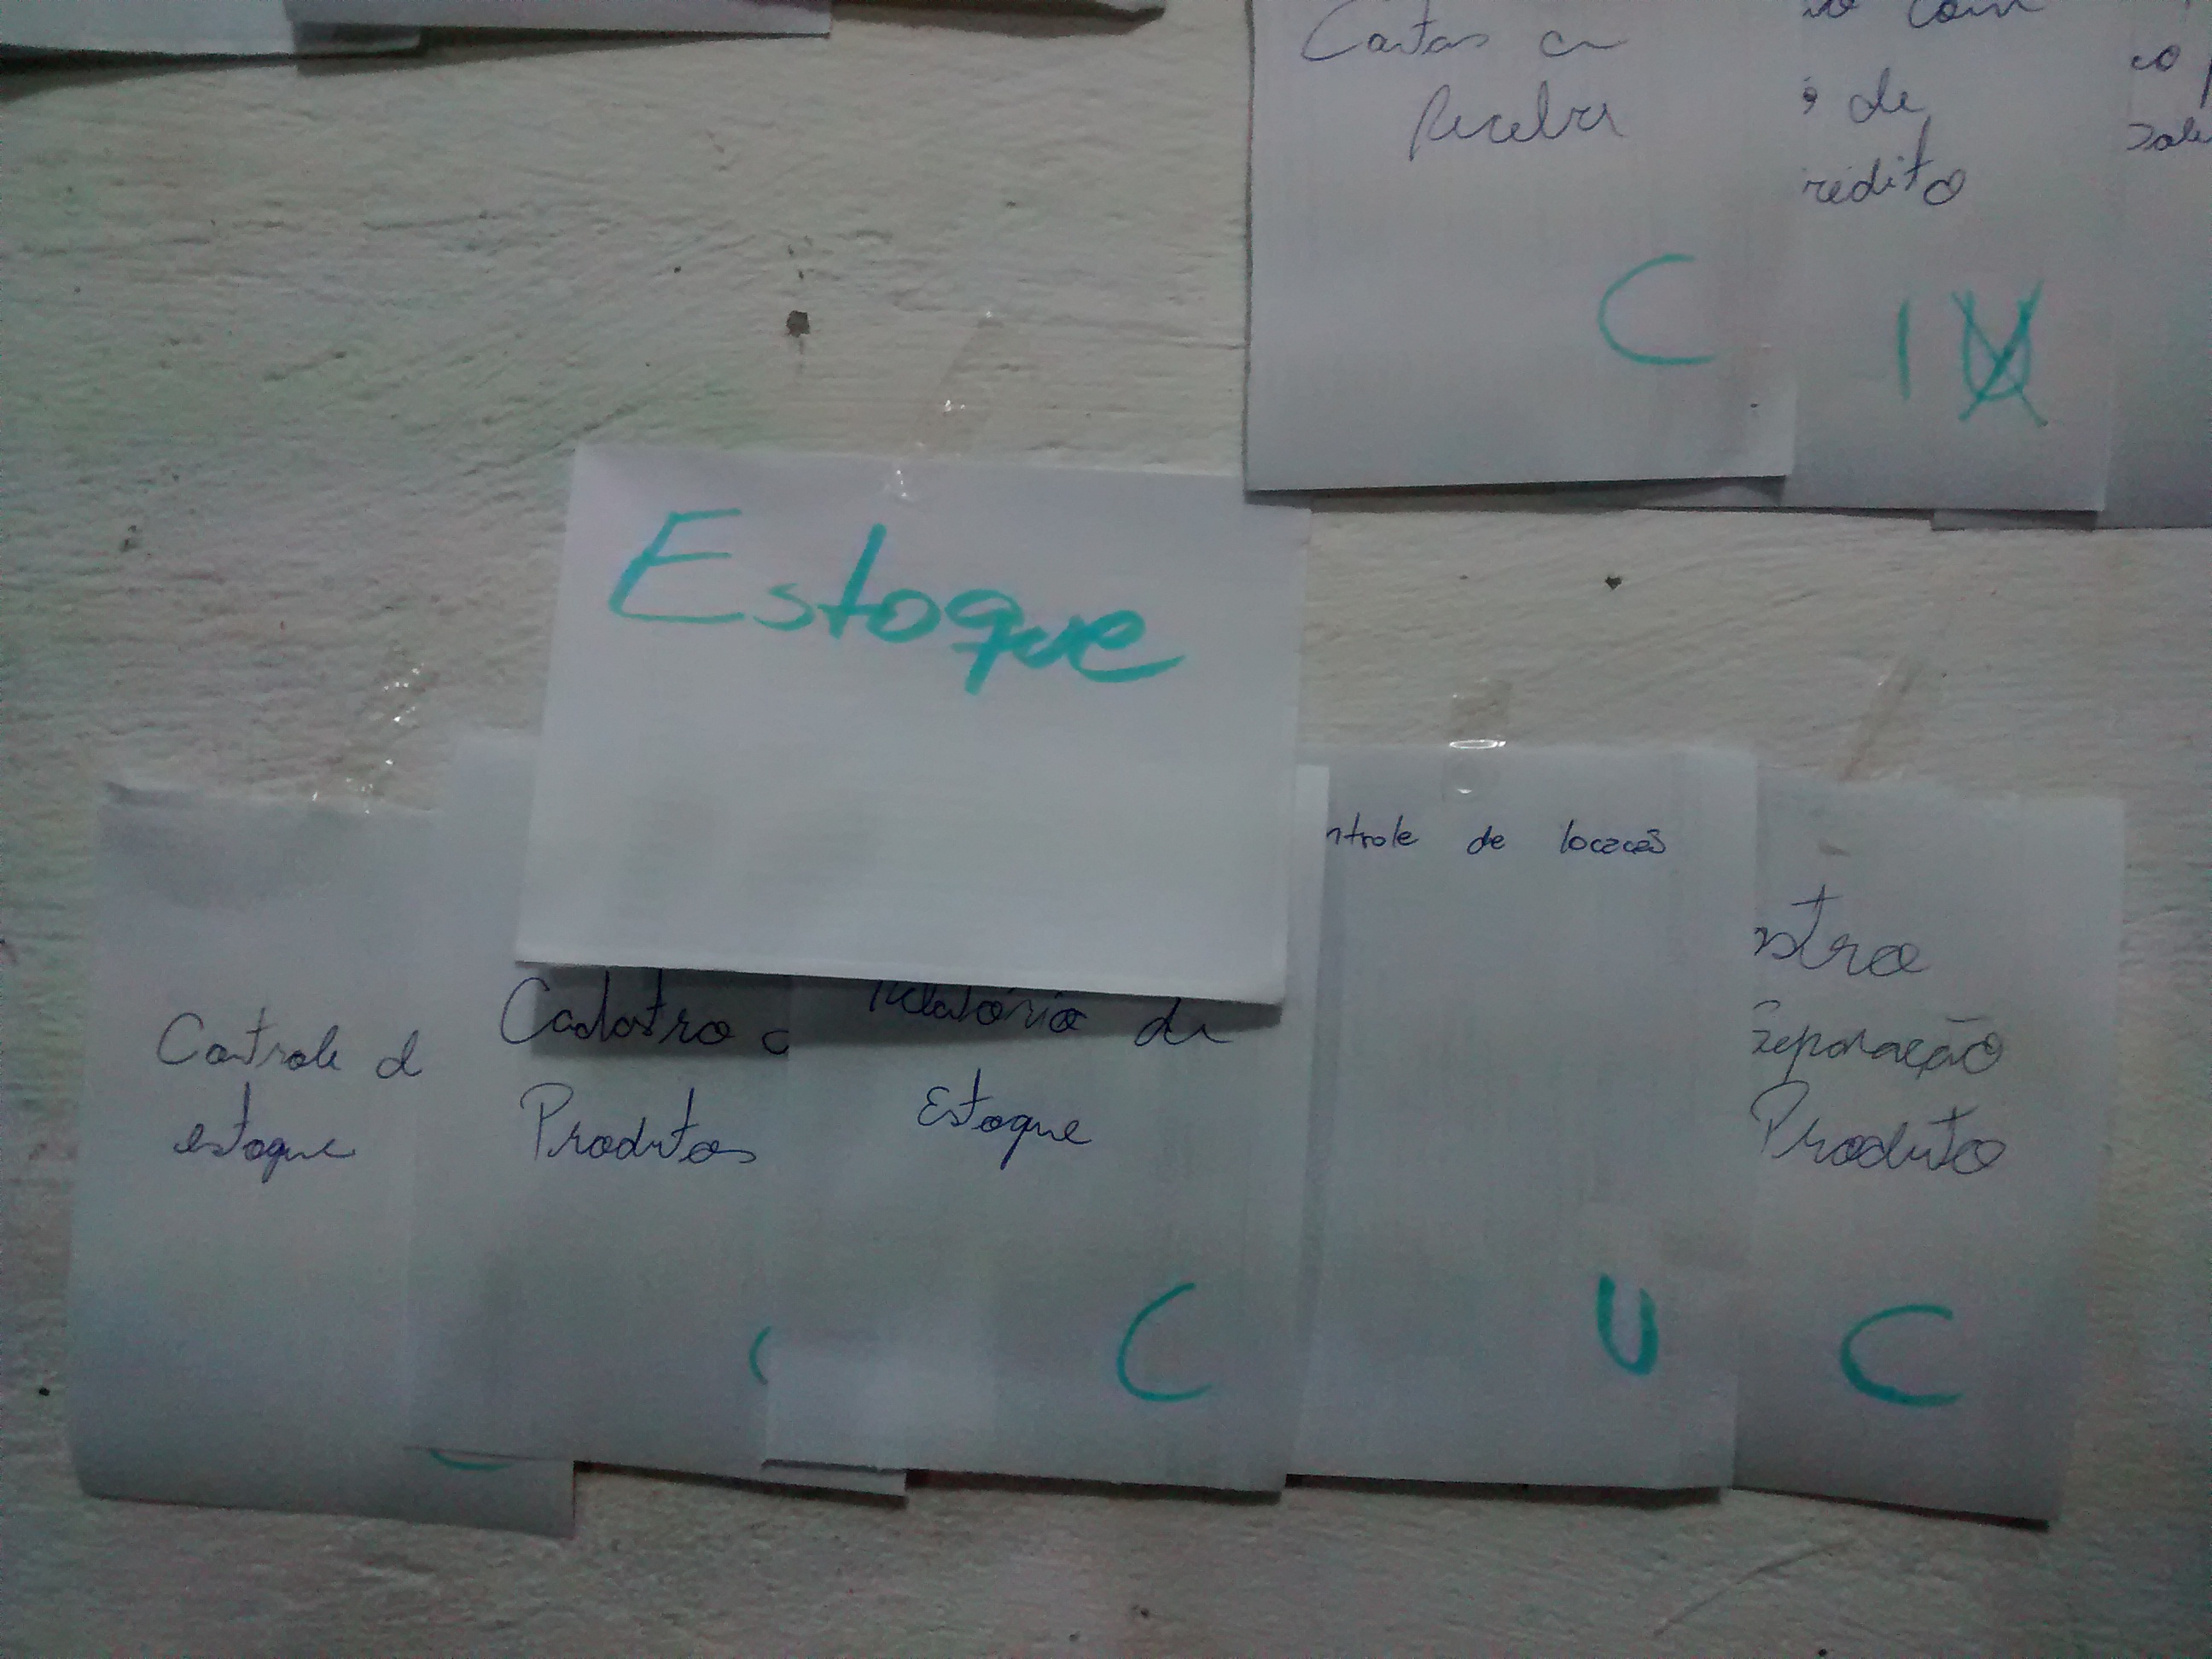 Contas a
Receber
C
de
rédito
I
Estoque
Controle d
estoque
Cadastro
Produtos
Relatório de
Estoque
C
ntrole de locaçoes
U
stro
Reparação
Produto
C